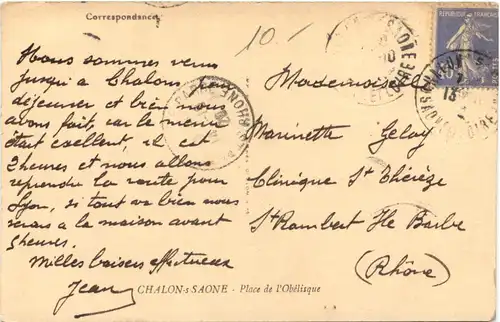 Correspondance
Nous sommes venu
jusqu'a Chalons pour
déjeuner et bien nous
avons fait, car le menu
était excellent, il est
2 heures et nous allons
reprendre la route pour
Lyon, si tout va bien nous
serons a la maison avant
5 heures.
Milles baisers affectueux
Jean
10
Mademoiselle
Marinette Gelay
Clinique St Thérèze
St Rambert Ile Barbe
(Rhône)
REPUBLIQUE FRANÇAISE
CHALON-s-SAONE - Place de l'Obélisque